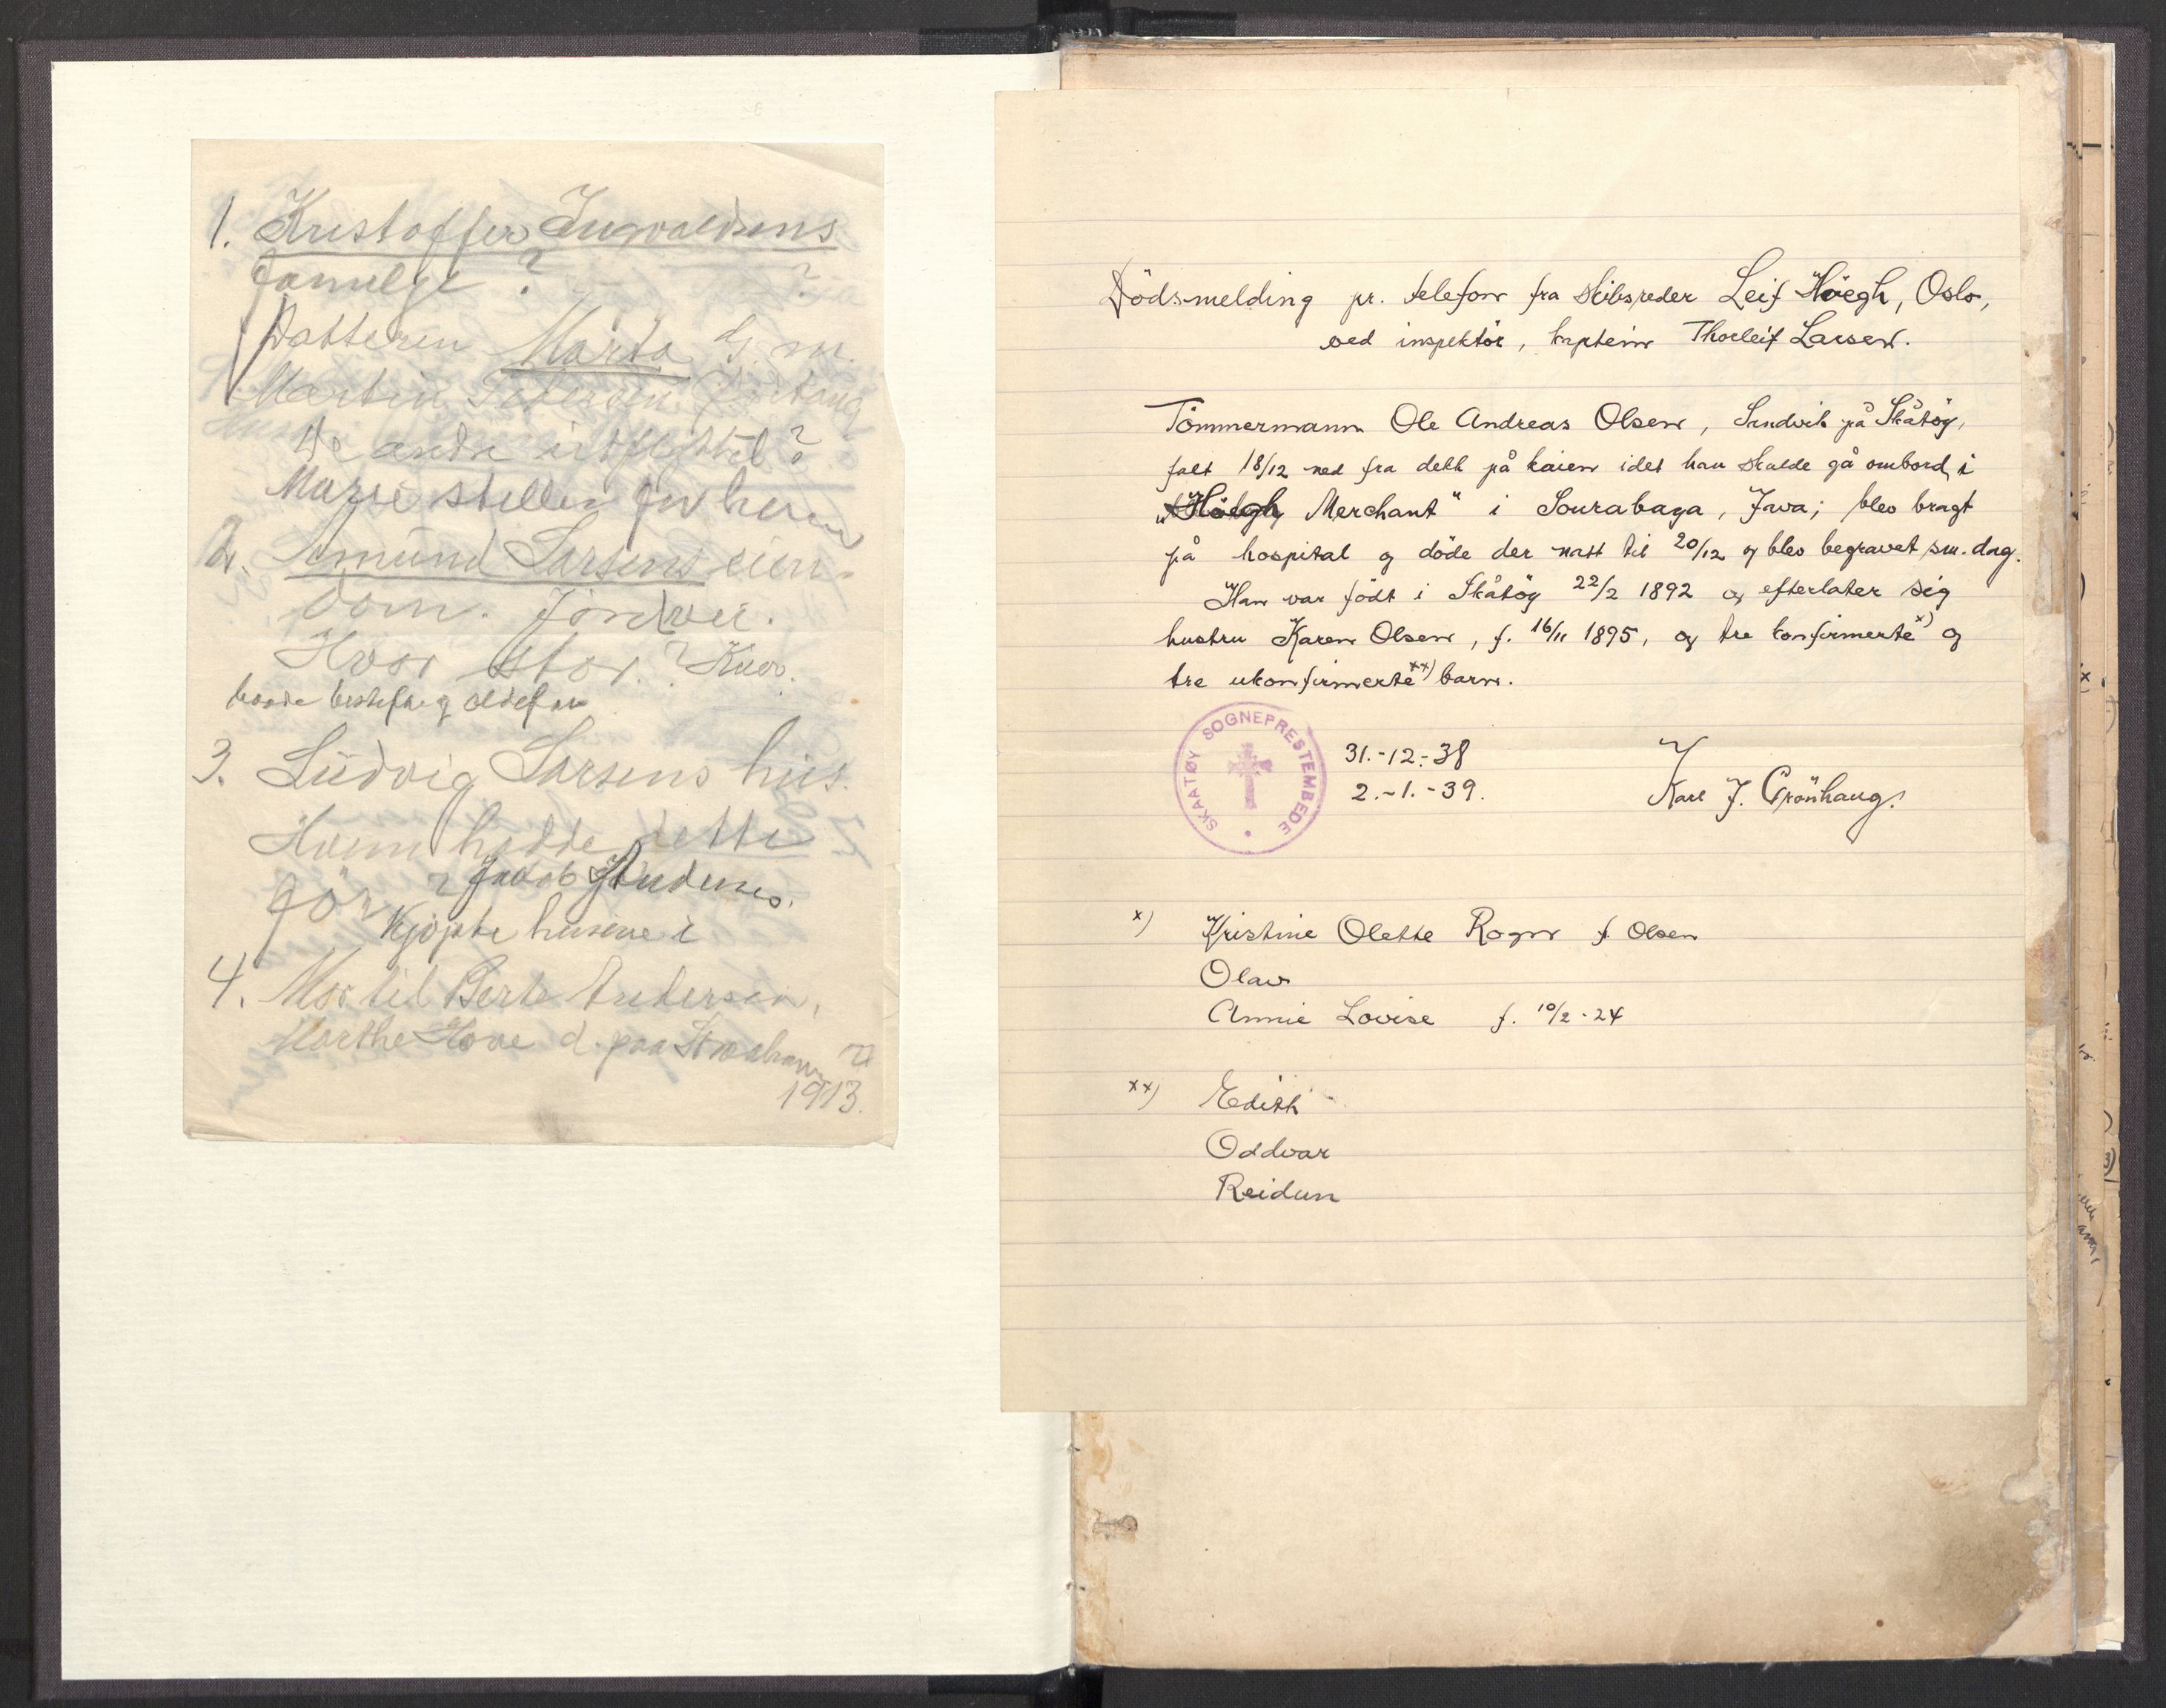 1. Kristoffer Ingvaldsens
familje ?
Datteren Marta g. m.
Martin Pedersen
De andre utflyttet ?
Marie steller for ham
2. Amund Larsens eien-
dom. Jordvei.
Hvor stor ? Kuer.
baade bestefar og oldefar
3. Ludvig Larsens hus.
Hvem hadde dette
før ? Jacob
Kjøpte husene i
4. Mor til Berte Andersen,
Marthe d. paa
1913.
Dödsmelding pr. telefon fra skibsreder Leif Höegh, Oslo,
ved inspektör, kaptein Thorleif Larsen.
Tömmermann Ole Andreas Olsen, Sandvik på Skåtöy,
falt 18/12 ned fra dekk på kaien idet han skulde gå ombord i
„Höegh Merchant" i Sourabaya, Java; blev bragt
på hospital og döde der natt til 20/12 og blev begravet sm. dag.
Han var födt i Skåtöy 22/2 1892 og efterlater sig
hustru Karen Olsen, f. 16/11 1895, og tre konfirmerte x) og
tre ukonfirmerte xx) barn.
SKAATØY SOGNEPRESTEMBEDE
31.-12.-38
2.-1.-39.
Karl J. Grönhaug.
x) Kristine Olette Rogn f. Olsen
Olav
Annie Lovise f. 10/2-24
xx) Edith
Oddvar
Reidun